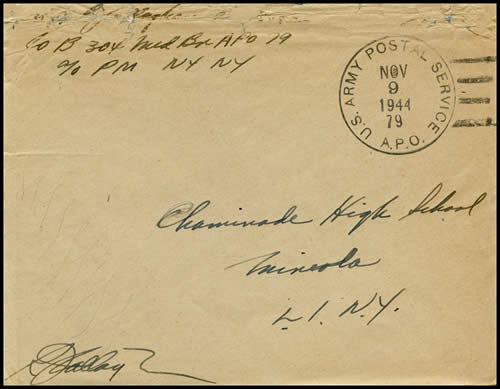 Co B 304 Med Bn APO 79
c/o PM NY NY
U.S. ARMY POSTAL SERVICE
NOV
9
1944
79
A.P.O.
Chaminade High School
Mineola
L. I. N.Y.